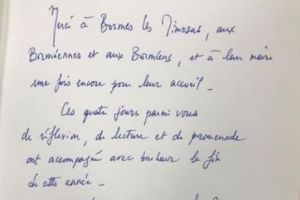 Merci à Bormes les Mimosas, aux
Borméennes et aux Borméens, et à leur maire
une fois encore pour leur accueil -
Ces quatre jours parmi vous
de réflexion, de lecture et de promenade
ont accompagné avec bonheur la fin
de cette année -